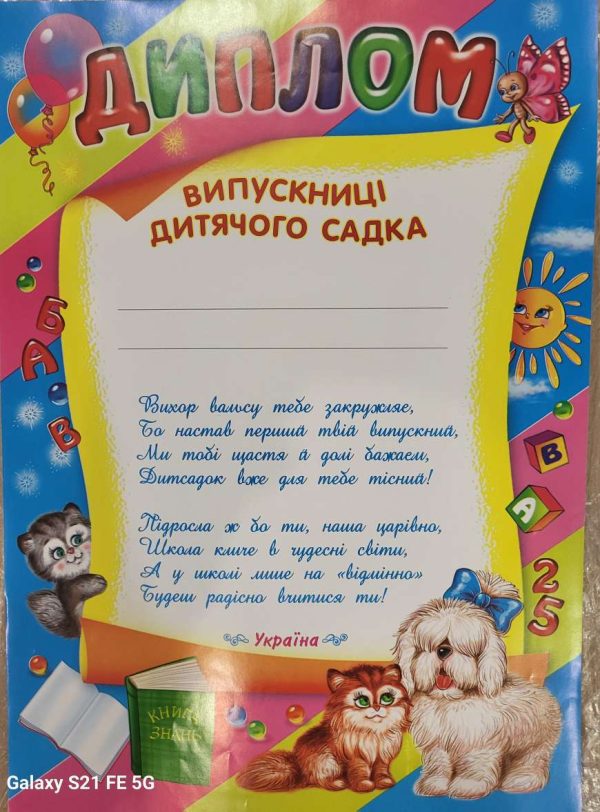 ДИПЛОМ
ВИПУСКНИЦІ
ДИТЯЧОГО САДКА
Вихор вальсу тебе закружляє,
Бо настав перший твій випускний,
Ми тобі щастя й долі бажаєм,
Дитсадок вже для тебе тісний!
Підросла ж бо ти, наша царівно,
Школа кличе в чудесні світи,
А у школі лише на «відмінно»
Будеш радісно вчитися ти!
Україна
Б
А
В
В
А
25
КНИГА
ЗНАНЬ
Galaxy S21 FE 5G